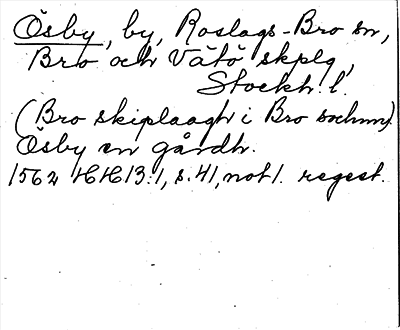 Ösby, by, Roslags-Bro sn,
Bro och Vätö skplg,
Stockh. l.
(Bro skiplaagh i Bro sochnn)
Ösby en gårdh.
1562 HH 13:1, s. 41, not 1. regest.